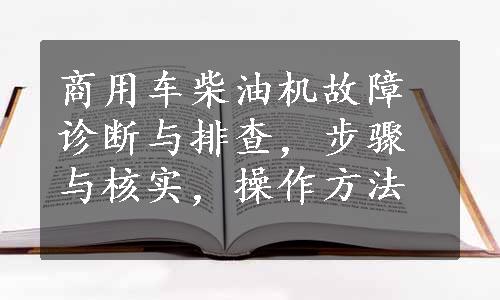 商用车柴油机故障
诊断与排查，步骤
与核实，操作方法